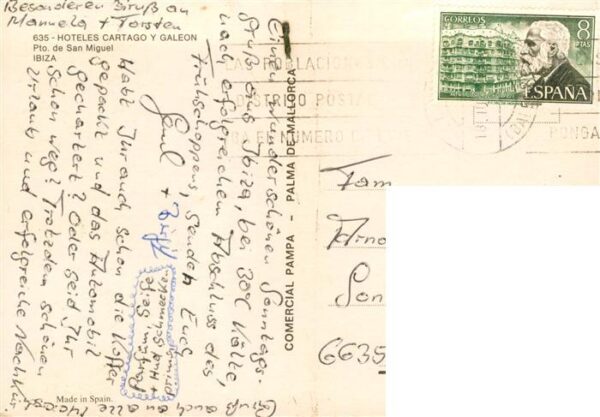 Besonderen Gruß an
Manuela + Torsten
635 - HOTELES CARTAGO Y GALEON
Pto. de San Miguel
IBIZA
Einen wunderschönen Sonntags-
gruß aus Ibiza, bei 30C Kälte,
nach erfolgreichem Abschluss des
Frühschoppens, senden Euch
+ Birgit
Habt Ihr auch schon die Koffer
gepackt und das Automobil
gechartert? Oder seid Ihr
schon weg? Trotzdem schönen
Urlaub und erfolgreiche
Gruß auch an alle
Made in Spain.
COMERCIAL PAMPA - PALMA DE MALLORCA
CORREOS
8
PTAS
ESPAÑA
LAS POBLACION
DISTRITO POSTAL
EL NUMERO
PONGA
Fam
Arno
Son
6635